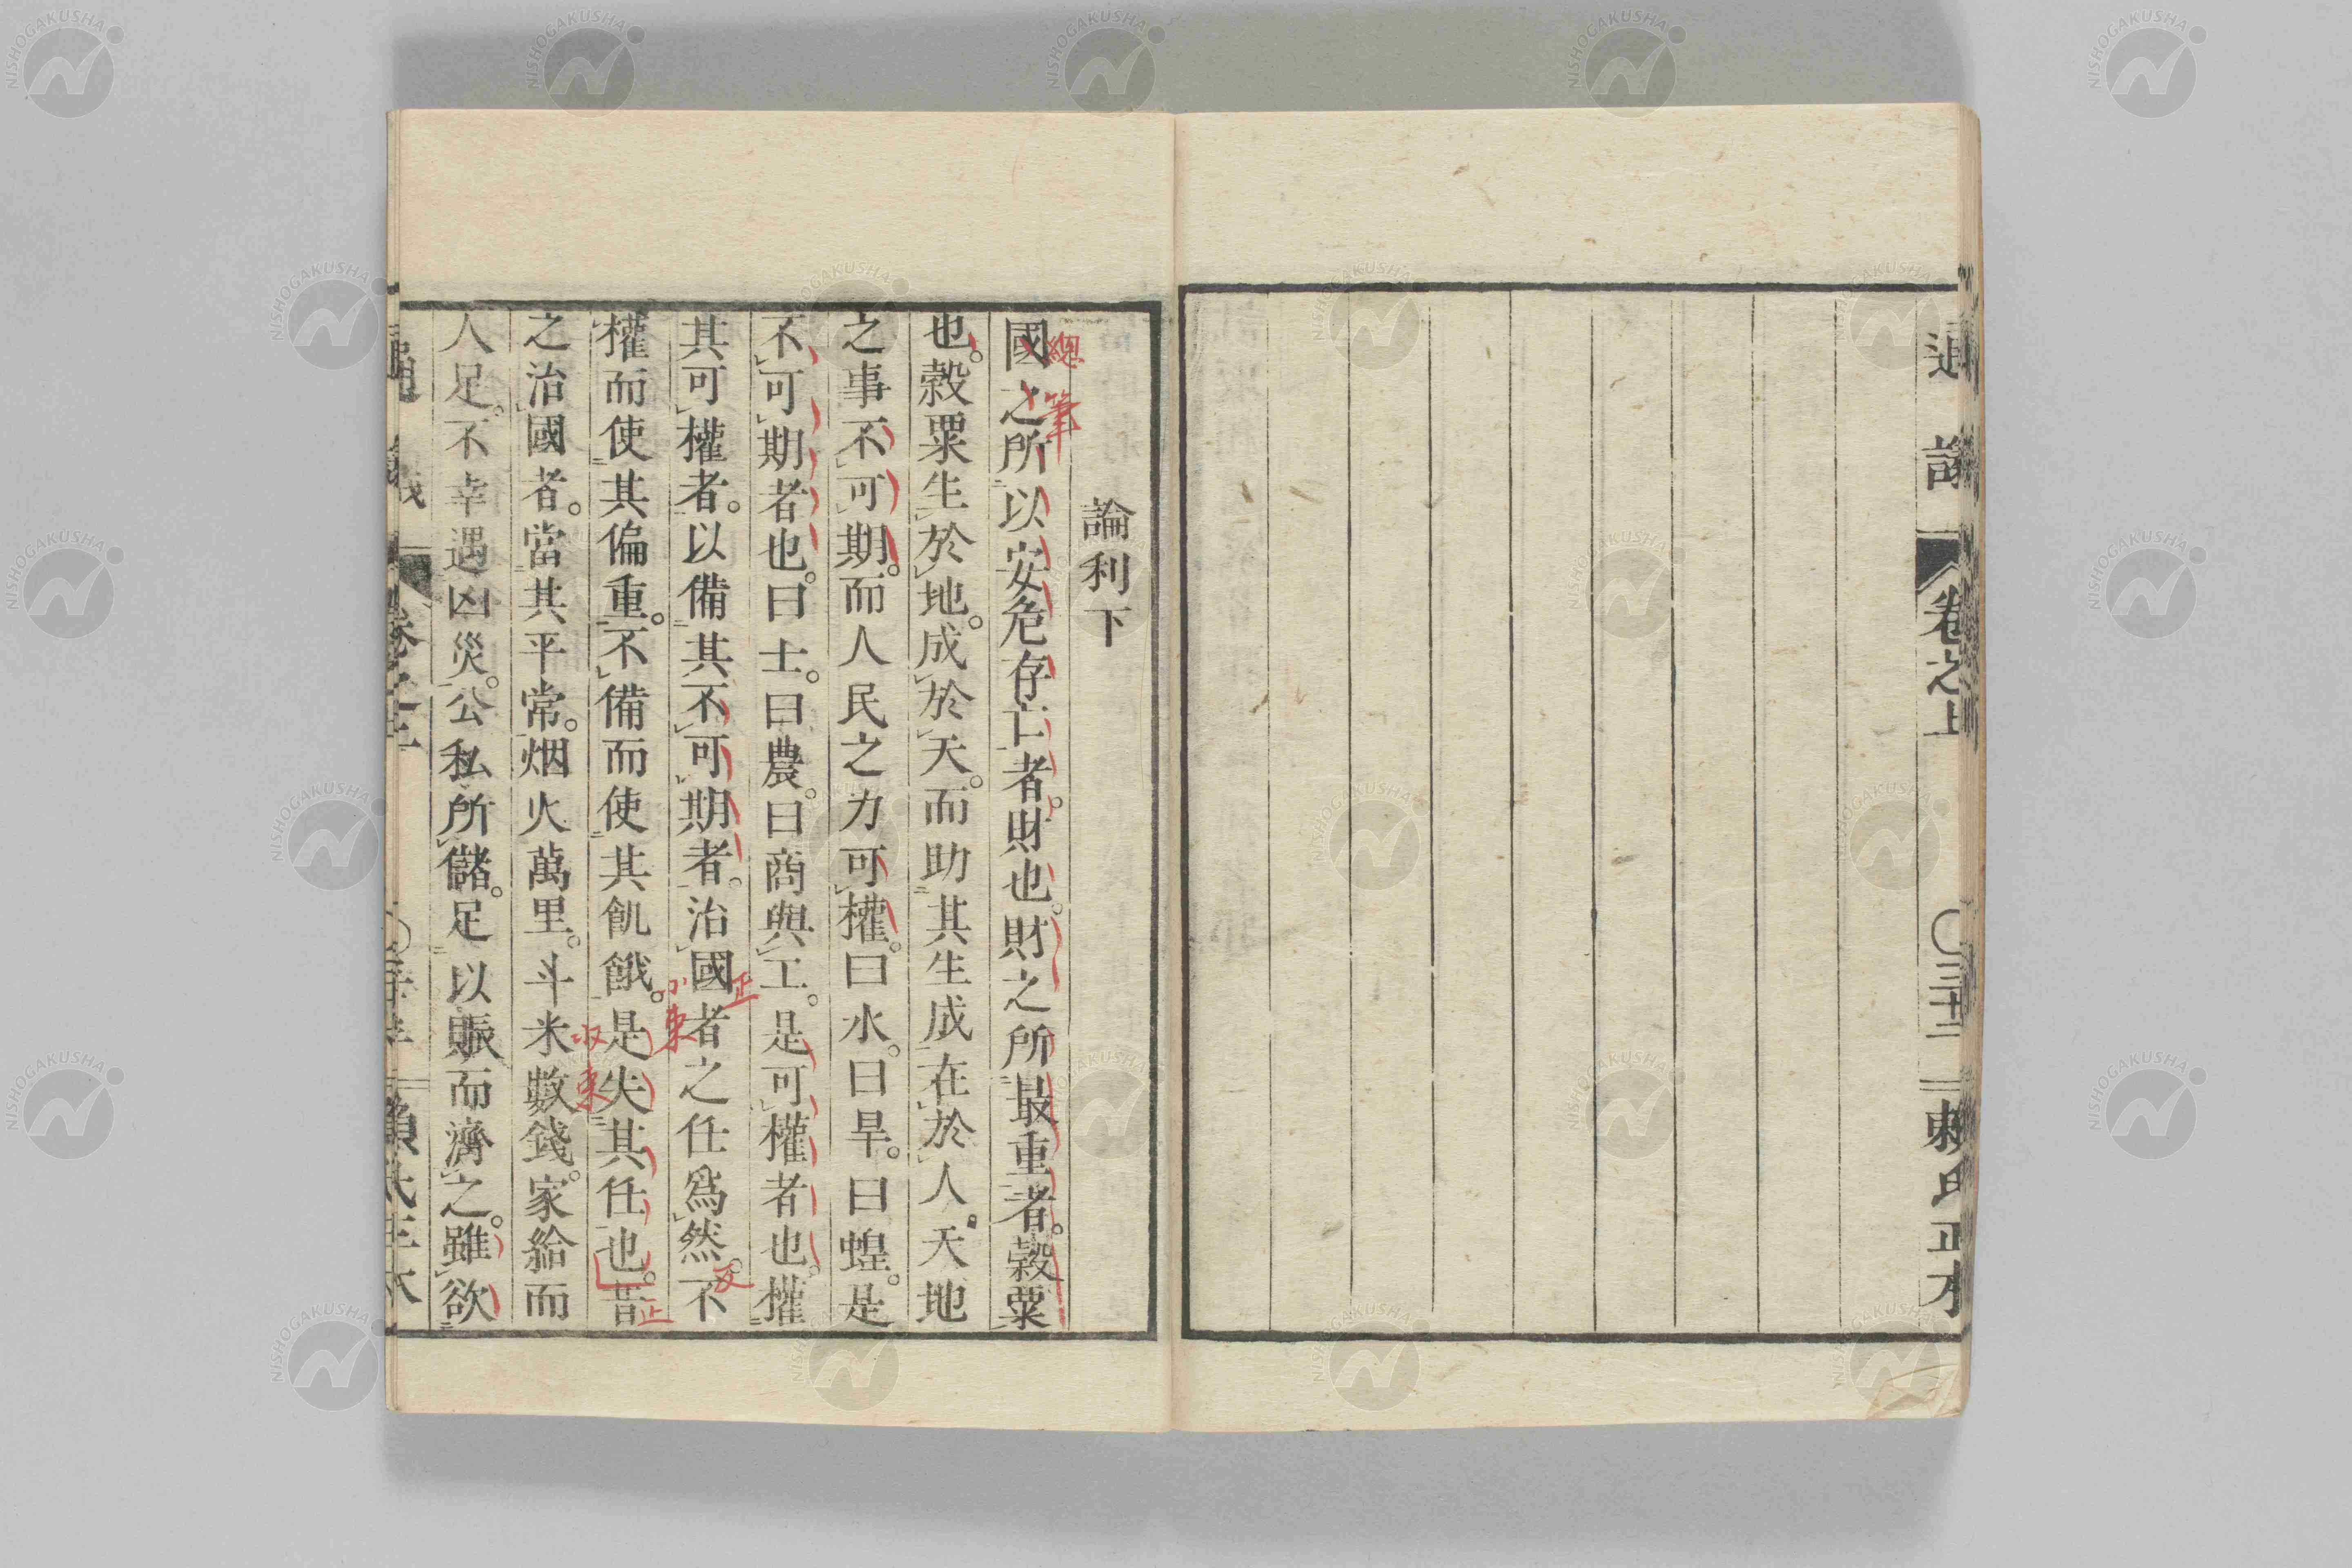 通議
卷之上
〇三十二
賴氏正本
論利下
國之所以安危存亡者。財也。財之所最重者。穀粟
也。穀粟生於地。成於天。而助其生成在於人。天地
之事不可期。而人民之力可權。曰水。曰旱。曰蝗。是
不可期者也。曰士。曰農。曰商與工。是可權者也。權
其可權者。以備其不可期者。治國者之任爲然。不
權而使其偏重。不備而使其飢餓。是失其任也。昔
之治國者。當其平常。烟火萬里。斗米數錢。家給而
人足。不幸遇凶災。公私所儲。足以賑而濟之。雖欲
總筆
正
反
小束
收束
正
通議
卷之上
賴氏正本
NISHOGAKUSHA